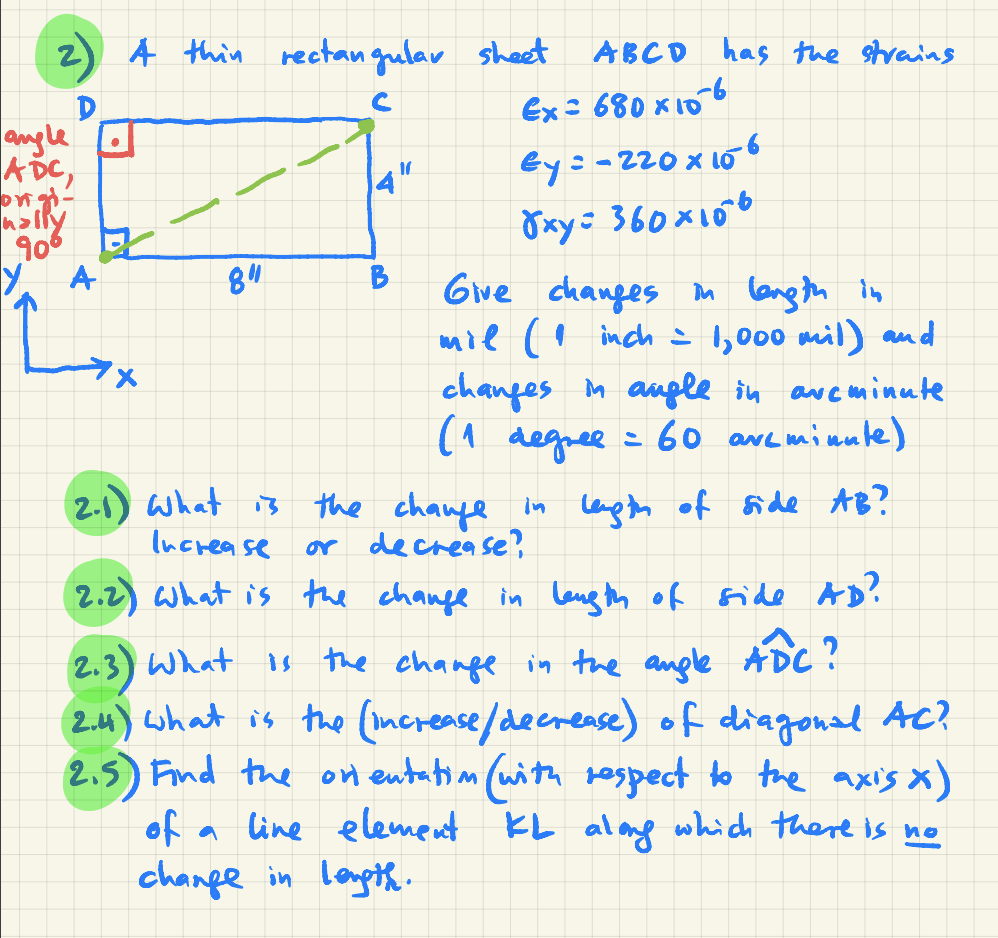 2) A thin rectangular sheet ABCD has the strains
D C
εx = 680 × 10⁻⁶
angle
ADC,
origi-
nally
90°
4"
εy = -220 × 10⁻⁶
γxy = 360 × 10⁻⁶
A 8" B
Y
X
Give changes in length in
mil (1 inch = 1,000 mil) and
changes in angle in arcminute
(1 degree = 60 arcminute)
2.1) What is the change in length of side AB?
Increase or decrease?
2.2) What is the change in length of side AD?
2.3) What is the change in the angle ADC?
2.4) What is the (increase/decrease) of diagonal AC?
2.5) Find the orientation (with respect to the axis x)
of a line element KL along which there is no
change in length.